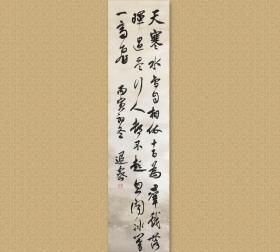 天寒水鸟自相依十百为群戏落
晖过尽行人都不起忽闻冰响
一齐飞
丙寅初冬